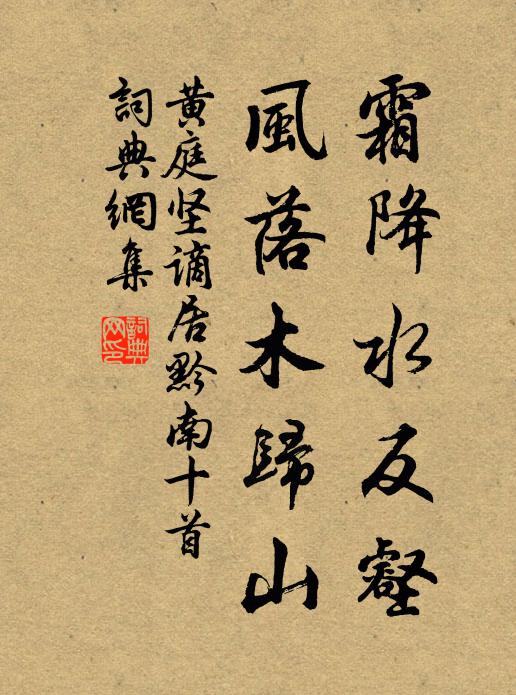 霜降水反壑
風落木歸山
黄庭坚謫居黔南十首
詞典網集
詞典網印